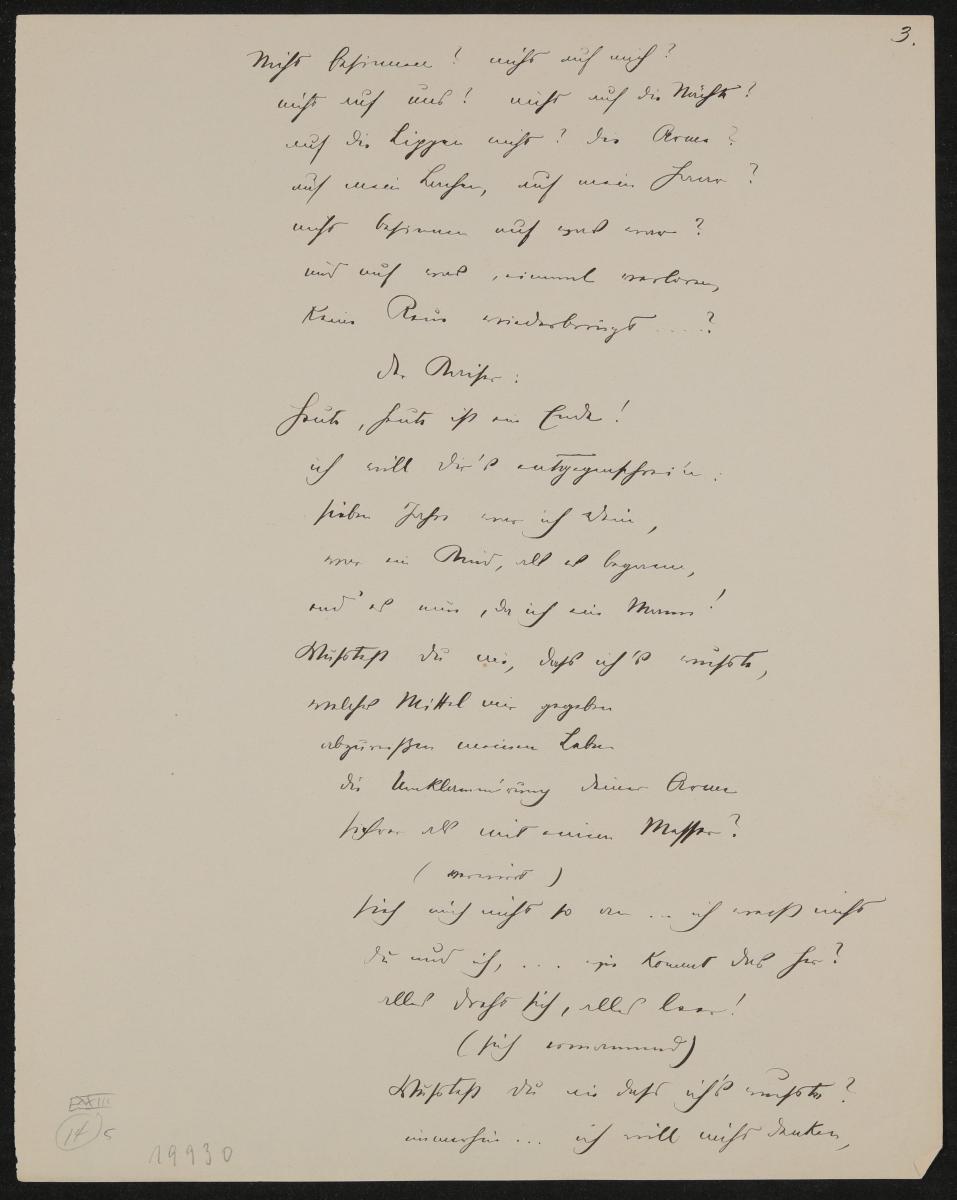 3.
Nicht besinnen? nicht auf mich?
nicht auf uns! nicht auf die Nächte?
auf die Lippen nicht? die Arme?
auf mein Lachen, auf mein Haar?
nicht besinnen auf was war?
und auf was, einmal verloren,
keine Reue wiederbringt ....?
Der Kaiser:
Heute, heute ist ein Ende!
ich will dir's entgegenschrei'n:
sieben Jahre war ich Dein,
war ein Kind, als es begann,
end' es nun, da ich ein Mann!
Wußtest du nie, daß ich's wußte,
welches Mittel mir gegeben
abzureißen meinem Leben
die Umklammerung deiner Arme
sichrer als mit einem Messer?
(verwirrt)
sieh mich nicht so an ... ich weiß nicht
du und ich, ... wie kommt das her?
alles dreht sich, alles leer!
(sich ermannend)
Wußtest du nie daß ich's wußte?
immerhin ... ich will nicht denken,
XXIII
14 c
19930